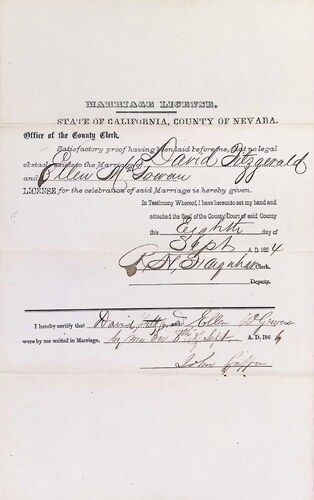 MARRIAGE LICENSE.
STATE OF CALIFORNIA, COUNTY OF NEVADA.
Office of the County Clerk,
Satisfactory proof having been laid before me, that no legal
obstacle exists to the Marriage of David Fitzgerald
and Ellen McGowan
LICENSE for the celebration of said Marriage is hereby given.
In Testimony Whereof, I have hereunto set my hand and
attached the Seal of the County Court of said County
this Eighth day of
Sept A. D. 1864
R. H. Clerk.
Deputy.
I hereby certify that David and Ellen McGowan
were by me united in Marriage, by me on Sept A. D. 186
John